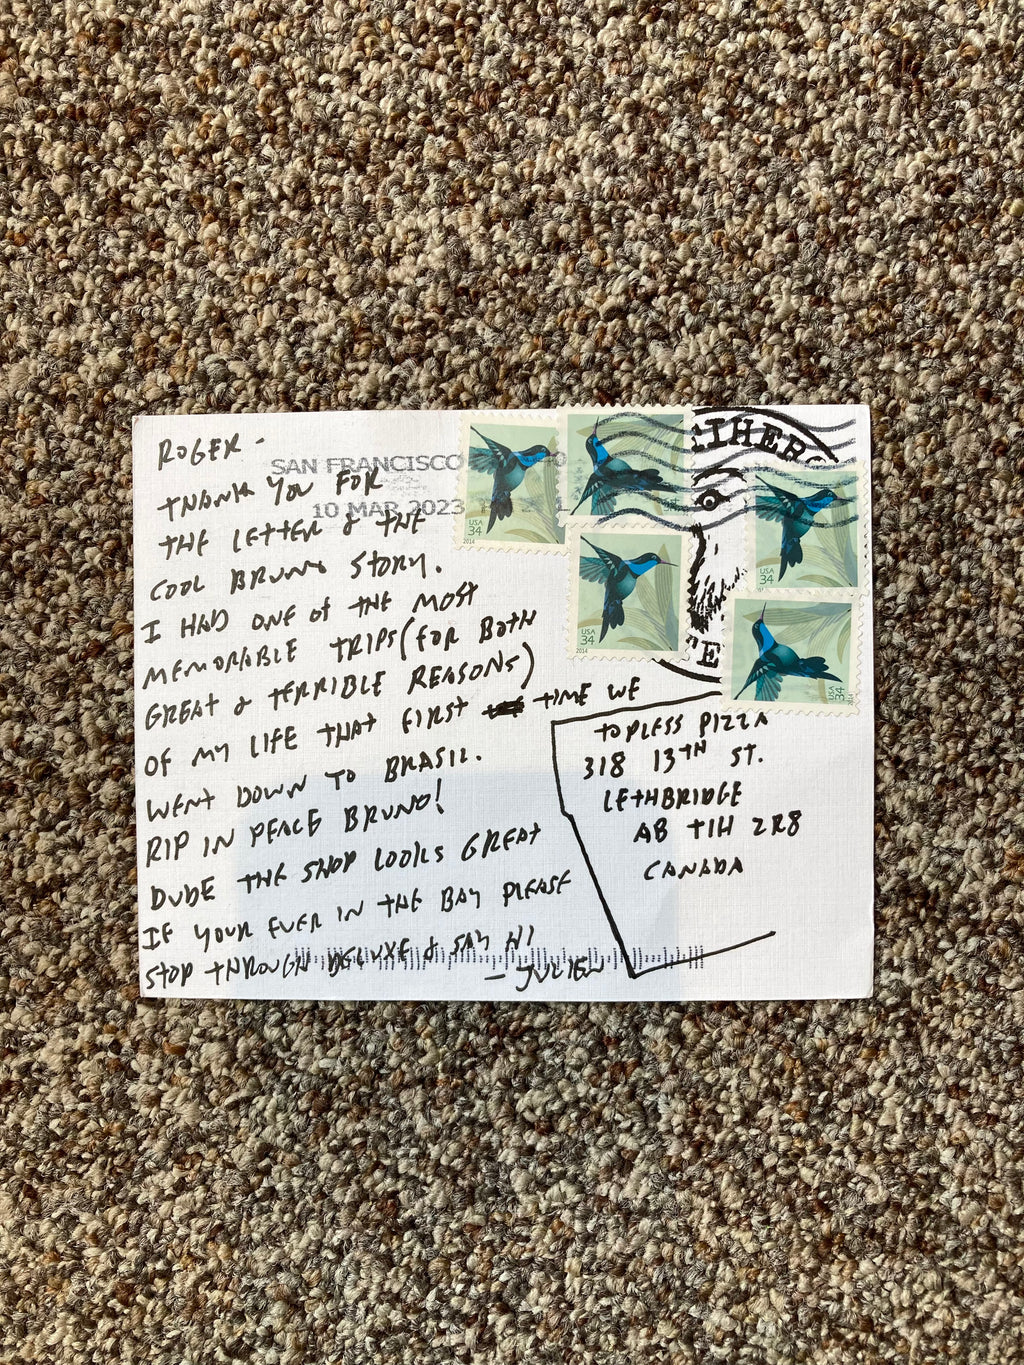 ROGER -
THANK YOU FOR
THE LETTER & THE
COOL BRUNO STORY.
I HAD ONE OF THE MOST
MEMORABLE TRIPS (FOR BOTH
GREAT & TERRIBLE REASONS)
OF MY LIFE THAT FIRST TIME WE
WENT DOWN TO BRASIL.
RIP IN PEACE BRUNO!
DUDE THE SHOP LOOKS GREAT
IF YOUR EVER IN THE BAY PLEASE
STOP THROUGH DELUXE & SAY HI
- JULIEN
SAN FRANCISCO
10 MAR 2023
USA
34
2014
USA
34
2014
USA
34
USA
34
2014
TOPLESS PIZZA
318 13TH ST.
LETHBRIDGE
AB T1H 2R8
CANADA